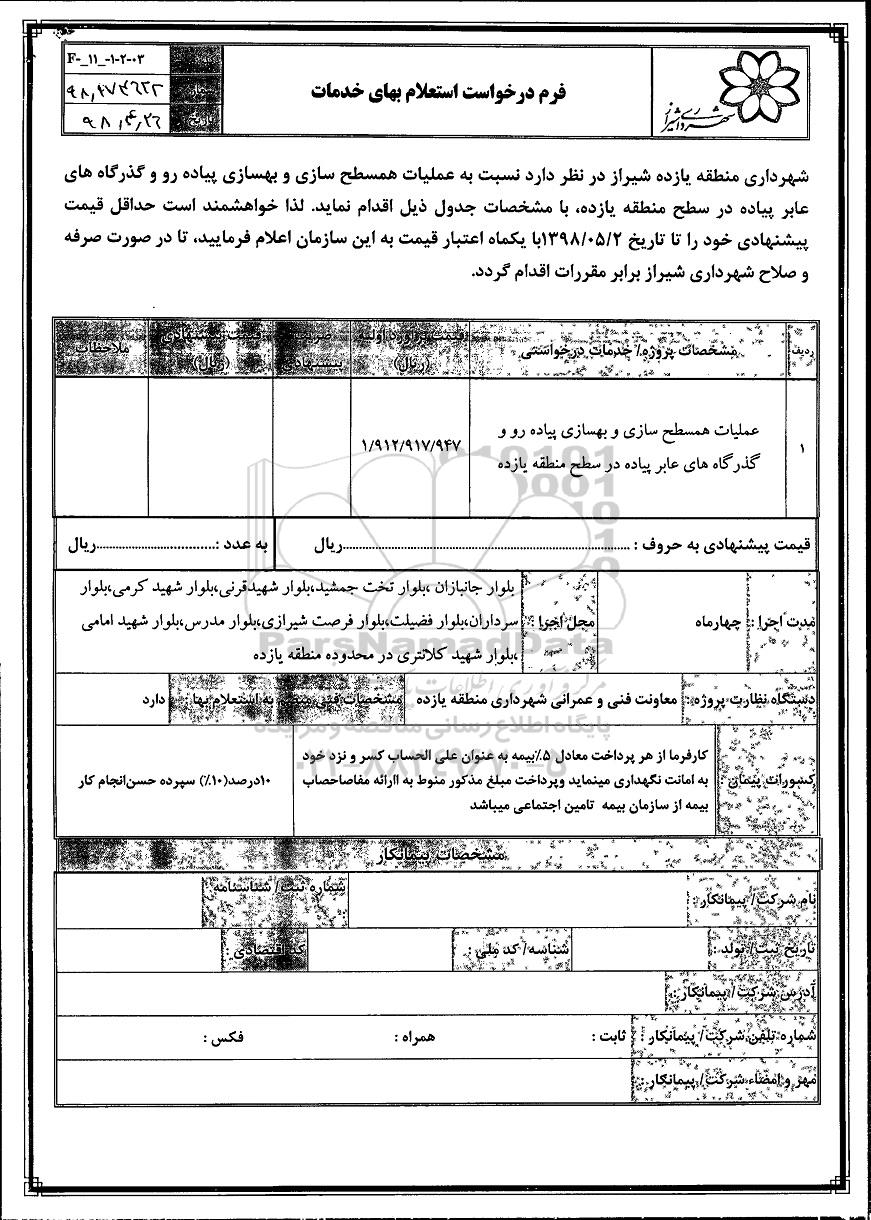 فرم درخواست استعلام بهای خدمات
شهرداری شیراز
F-_۱۱_-۱-۲-۰۳
تاریخ
۹۸,۴,۲۶
شهرداری منطقه یازده شیراز در نظر دارد نسبت به عملیات همسطح سازی و بهسازی پیاده رو و گذرگاه های
عابر پیاده در سطح منطقه یازده، با مشخصات جدول ذیل اقدام نماید. لذا خواهشمند است حداقل قیمت
پیشنهادی خود را تا تاریخ ۱۳۹۸/۰۵/۲با یکماه اعتبار قیمت به این سازمان اعلام فرمایید، تا در صورت صرفه
و صلاح شهرداری شیراز برابر مقررات اقدام گردد.
ردیف مشخصات پروژه/ خدمات درخواستی قیمت برآورد اولیه (ریال) ملاحظات
۱ عملیات همسطح سازی و بهسازی پیاده رو و ۱/۹۱۲/۹۱۷/۹۴۷
گذرگاه های عابر پیاده در سطح منطقه یازده
قیمت پیشنهادی به حروف : ..........ریال به عدد :..........ریال
مدت اجرا : چهارماه
محل اجرا :
بلوار جانبازان ،بلوار تخت جمشید،بلوار شهیدقرنی،بلوار شهید کرمی،بلوار
سرداران،بلوار فضیلت،بلوار فرصت شیرازی،بلوار مدرس،بلوار شهید امامی
،بلوار شهید کلانتری در محدوده منطقه یازده
دستگاه نظارت پروژه : معاونت فنی و عمرانی شهرداری منطقه یازده مشخصات فنی منضم به استعلام بها : دارد
کسورات پیمان
کارفرما از هر پرداخت معادل ۵٪بیمه به عنوان علی الحساب کسر و نزد خود
به امانت نگهداری مینماید وپرداخت مبلغ مذکور منوط به اارائه مفاصاحصاب
بیمه از سازمان بیمه تامین اجتماعی میباشد
۱۰درصد(۱۰٪) سپرده حسن‌انجام کار
مشخصات پیمانکار
نام شرکت/ پیمانکار : شماره ثبت/ شناسنامه :
تاریخ ثبت/ تولد : شناسه/ کد ملی : کد اقتصادی :
آدرس شرکت/ پیمانکار :
شماره تلفن شرکت/ پیمانکار : ثابت : همراه : فکس :
مهر و امضاء شرکت/ پیمانکار :
ParsNamadData
پایگاه اطلاع رسانی مناقصه و مزایده